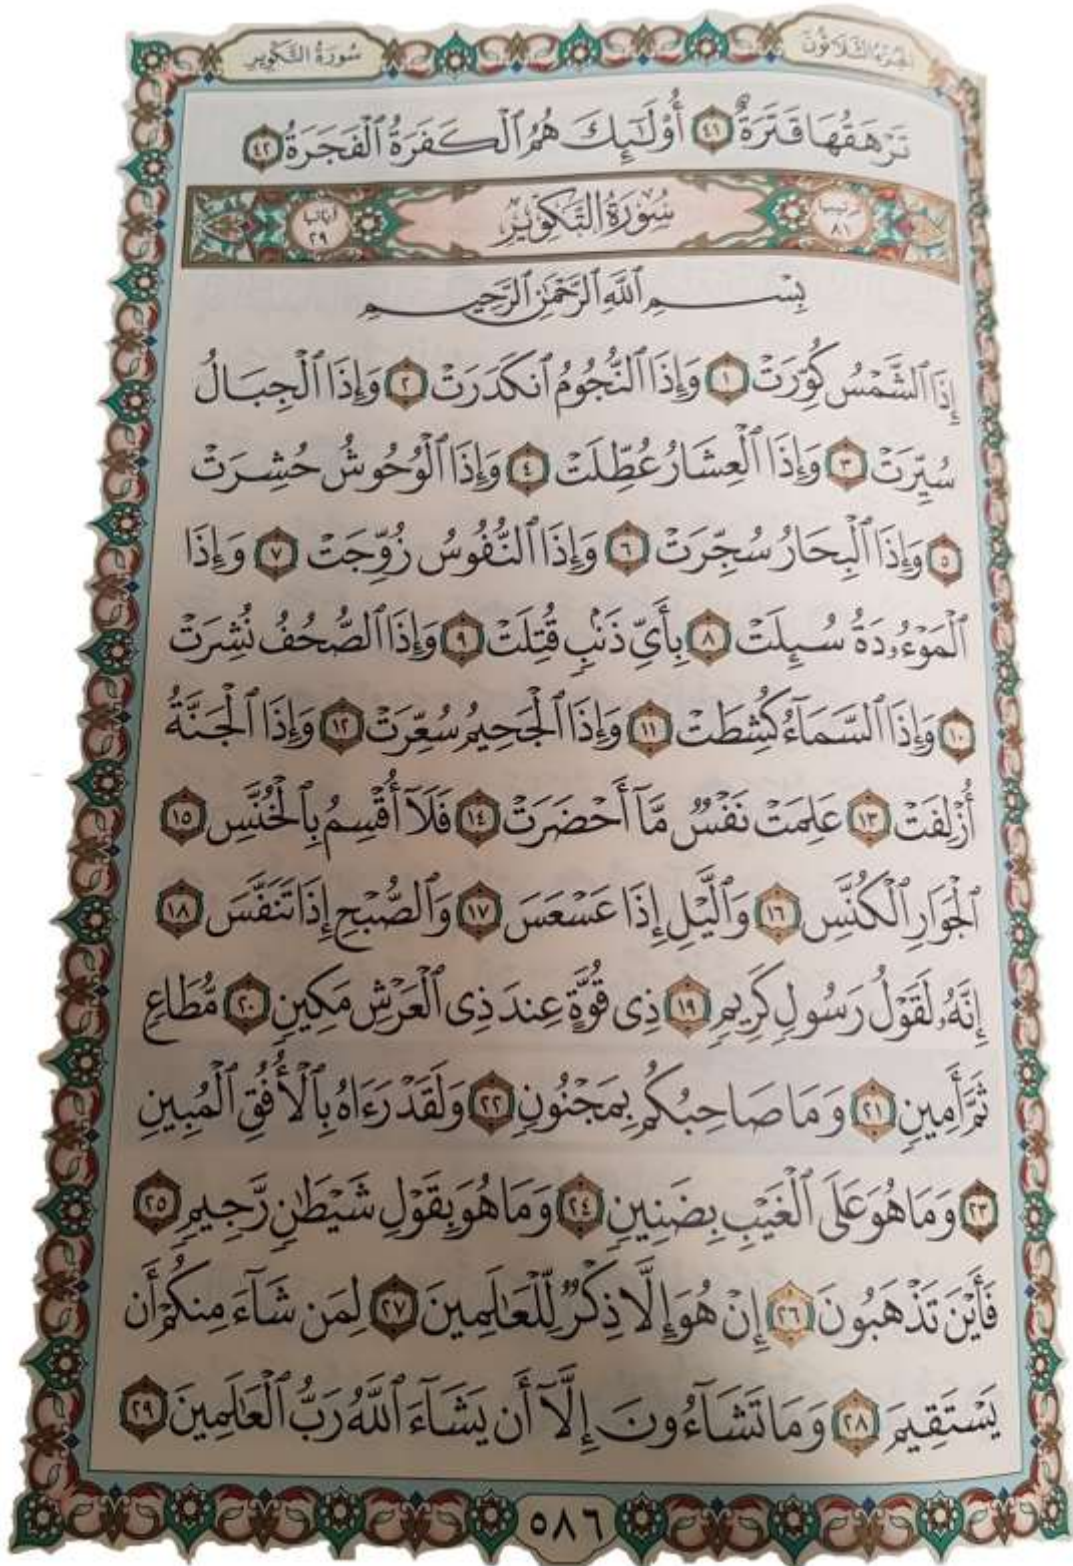 الجزء الثلاثون
سورة التكوير
تَرْهَقُهَا قَتَرَةٌ ٤١ أُوْلَٰٓئِكَ هُمُ ٱلْكَفَرَةُ ٱلْفَجَرَةُ ٤٢
ترتيبها ٨١ سُورَةُ التَّكْوِيرِ آياتها ٢٩
بِسْمِ ٱللَّهِ ٱلرَّحْمَٰنِ ٱلرَّحِيمِ
إِذَا ٱلشَّمْسُ كُوِّرَتْ ١ وَإِذَا ٱلنُّجُومُ ٱنكَدَرَتْ ٢ وَإِذَا ٱلْجِبَالُ
سُيِّرَتْ ٣ وَإِذَا ٱلْعِشَارُ عُطِّلَتْ ٤ وَإِذَا ٱلْوُحُوشُ حُشِرَتْ
٥ وَإِذَا ٱلْبِحَارُ سُجِّرَتْ ٦ وَإِذَا ٱلنُّفُوسُ زُوِّجَتْ ٧ وَإِذَا
ٱلْمَوْءُۥدَةُ سُئِلَتْ ٨ بِأَىِّ ذَنۢبٍ قُتِلَتْ ٩ وَإِذَا ٱلصُّحُفُ نُشِرَتْ
١٠ وَإِذَا ٱلسَّمَآءُ كُشِطَتْ ١١ وَإِذَا ٱلْجَحِيمُ سُعِّرَتْ ١٢ وَإِذَا ٱلْجَنَّةُ
أُزْلِفَتْ ١٣ عَلِمَتْ نَفْسٌ مَّآ أَحْضَرَتْ ١٤ فَلَآ أُقْسِمُ بِٱلْخُنَّسِ ١٥
ٱلْجَوَارِ ٱلْكُنَّسِ ١٦ وَٱلَّيْلِ إِذَا عَسْعَسَ ١٧ وَٱلصُّبْحِ إِذَا تَنَفَّسَ ١٨
إِنَّهُۥ لَقَوْلُ رَسُولٍ كَرِيمٍ ١٩ ذِى قُوَّةٍ عِندَ ذِى ٱلْعَرْشِ مَكِينٍ ٢٠ مُّطَاعٍ
ثَمَّ أَمِينٍ ٢١ وَمَا صَاحِبُكُم بِمَجْنُونٍ ٢٢ وَلَقَدْ رَءَاهُ بِٱلْأُفُقِ ٱلْمُبِينِ
٢٣ وَمَا هُوَ عَلَى ٱلْغَيْبِ بِضَنِينٍ ٢٤ وَمَا هُوَ بِقَوْلِ شَيْطَٰنٍ رَّجِيمٍ ٢٥
فَأَيْنَ تَذْهَبُونَ ٢٦ إِنْ هُوَ إِلَّا ذِكْرٌ لِّلْعَٰلَمِينَ ٢٧ لِمَن شَآءَ مِنكُمْ أَن
يَسْتَقِيمَ ٢٨ وَمَا تَشَآءُونَ إِلَّآ أَن يَشَآءَ ٱللَّهُ رَبُّ ٱلْعَٰلَمِينَ ٢٩
٥٨٦